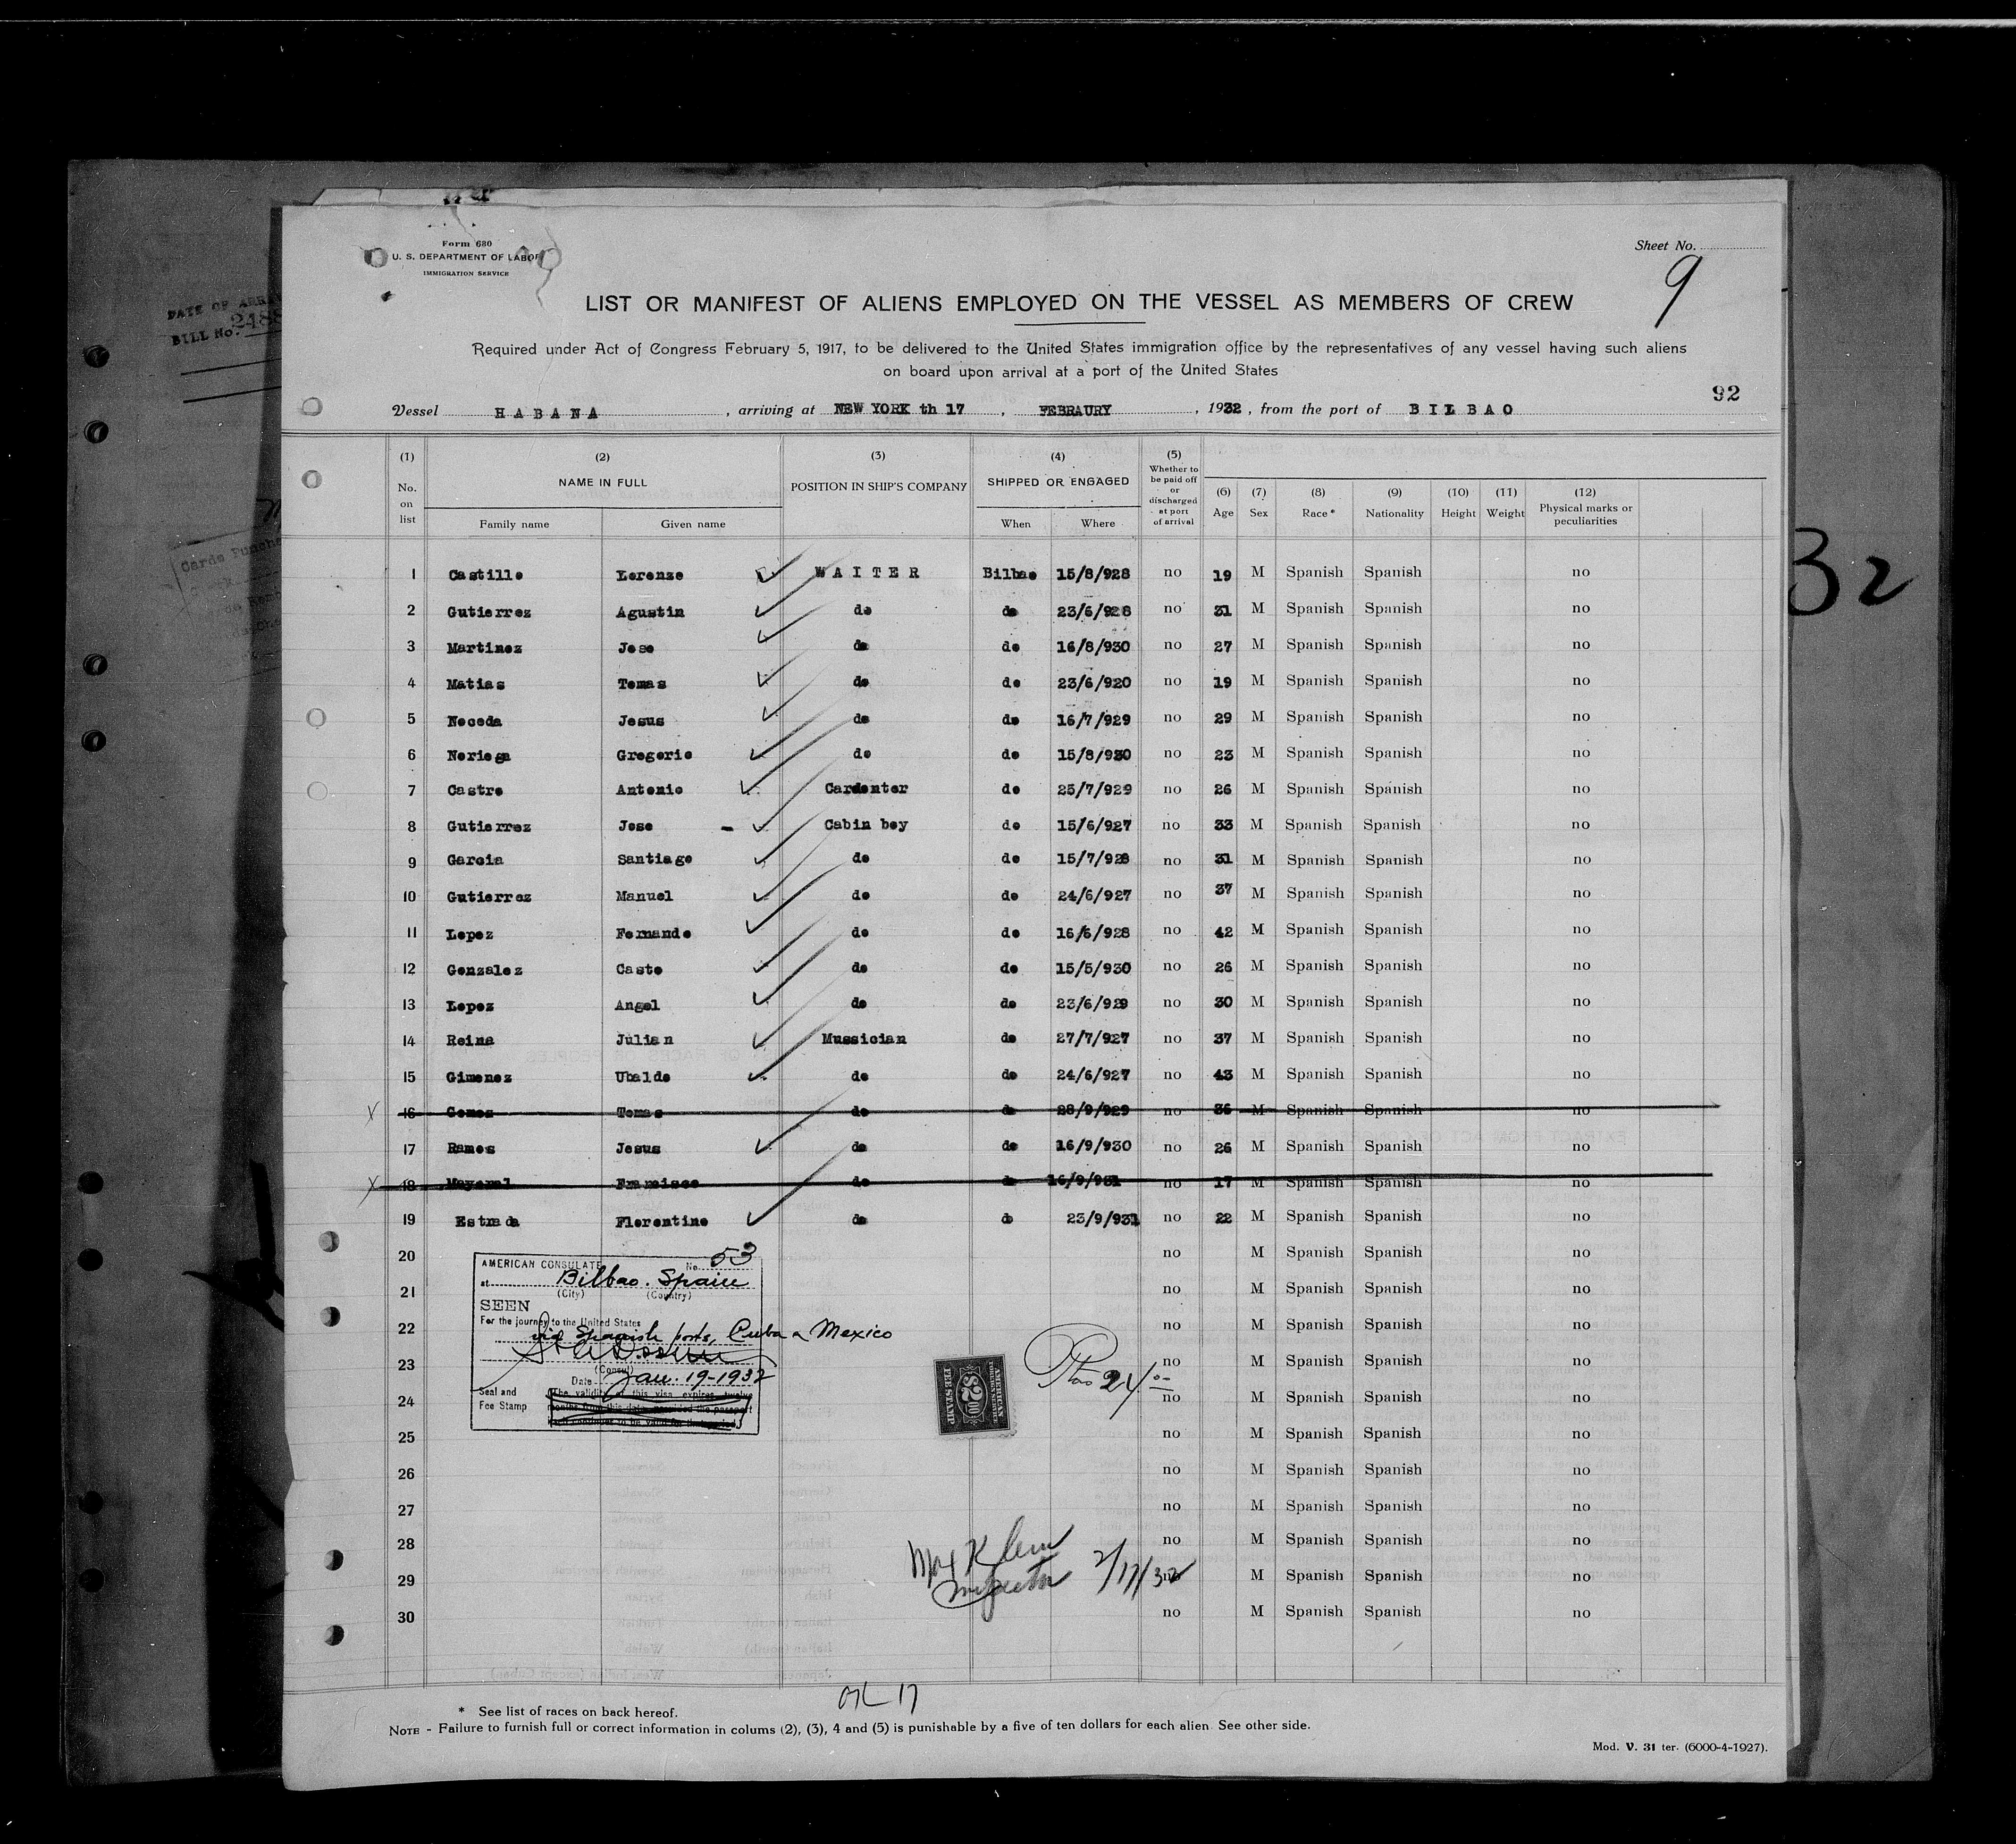 Form 680
U. S. DEPARTMENT OF LABOR
IMMIGRATION SERVICE
Sheet No.
9
LIST OR MANIFEST OF ALIENS EMPLOYED ON THE VESSEL AS MEMBERS OF CREW
Required under Act of Congress February 5, 1917, to be delivered to the United States immigration office by the representatives of any vessel having such aliens
on board upon arrival at a port of the United States
92
Vessel HABANA , arriving at NEW YORK th 17 , FEBRAURY , 1932 , from the port of BILBAO
DATE OF ARRI
BILL No. 2488
Cards Punche
32
(1) No. on list (2) NAME IN FULL Family name Given name (3) POSITION IN SHIP'S COMPANY (4) SHIPPED OR ENGAGED When Where (5) Whether to be paid off or discharged at port of arrival (6) Age (7) Sex (8) Race* (9) Nationality (10) Height (11) Weight (12) Physical marks or peculiarities
1 Castillo Lorenzo WAITER Bilbao 15/8/928 no 19 M Spanish Spanish no
2 Gutierrez Agustin do do 23/6/928 no 31 M Spanish Spanish no
3 Martinez Jose do do 16/8/930 no 27 M Spanish Spanish no
4 Matias Tomas do do 23/6/920 no 19 M Spanish Spanish no
5 Noceda Jesus do do 16/7/929 no 29 M Spanish Spanish no
6 Noriega Gregorio do do 15/8/930 no 23 M Spanish Spanish no
7 Castro Antonio Cardenter do 25/7/929 no 26 M Spanish Spanish no
8 Gutierrez Jose - Cabin boy do 15/6/927 no 33 M Spanish Spanish no
9 Garcia Santiago do do 15/7/928 no 31 M Spanish Spanish no
10 Gutierrez Manuel do do 24/6/927 no 37 M Spanish Spanish no
11 Lopez Fernando do do 16/6/928 no 42 M Spanish Spanish no
12 Gonzalez Casto do do 15/5/930 no 26 M Spanish Spanish no
13 Lopez Angel do do 23/6/929 no 30 M Spanish Spanish no
14 Reina Julian Mussician do 27/7/927 no 37 M Spanish Spanish no
15 Gimenez Ubaldo do do 24/6/927 no 43 M Spanish Spanish no
16 Gomez Tomas do do 28/9/929 no 36 M Spanish Spanish no
17 Ramos Jesus do do 16/9/930 no 26 M Spanish Spanish no
18 Mayoral Francisco do do 16/9/931 no 17 M Spanish Spanish no
19 Estrada Florentino do do 23/9/931 no 22 M Spanish Spanish no
20 no M Spanish Spanish no
21 no M Spanish Spanish no
22 no M Spanish Spanish no
23 no M Spanish Spanish no
24 no M Spanish Spanish no
25 no M Spanish Spanish no
26 no M Spanish Spanish no
27 no M Spanish Spanish no
28 no M Spanish Spanish no
29 no M Spanish Spanish no
30 no M Spanish Spanish no
AMERICAN CONSULATE No. 53
at Bilbao. Spain
(City) (Country)
SEEN
For the journey to the United States
via Spanish ports, Cuba a Mexico
(Consul)
Date Jan. 19-1932
Seal and
Fee Stamp
The validity of this visa expires twelve
months from this date provided the passport
AMERICAN
$2.00
FEE STAMP
Ptas 24.00
Max Klein
Inspector 2/17/32
OK 17
* See list of races on back hereof.
NOTE - Failure to furnish full or correct information in colums (2), (3), 4 and (5) is punishable by a five of ten dollars for each alien. See other side.
Mod. V. 31 ter. (6000-4-1927).